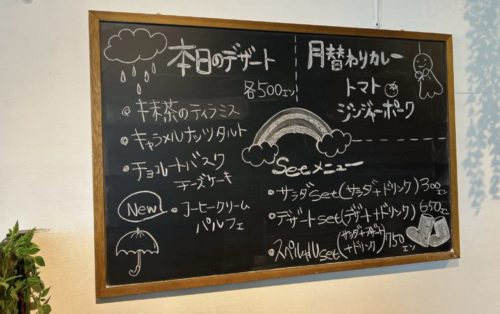 本日のデザート
各500エン
・抹茶のティラミス
・キャラメルナッツタルト
・チョコレートバスク
チーズケーキ
New
・コーヒークリーム
パルフェ
月替わりカレー
トマト
ジンジャーポーク
Setメニュー
・サラダset(サラダ+ドリンク)300エン
・デザートset(デザート+ドリンク)650エン
・スペシャルset(サラダ+デザート+ドリンク)750エン